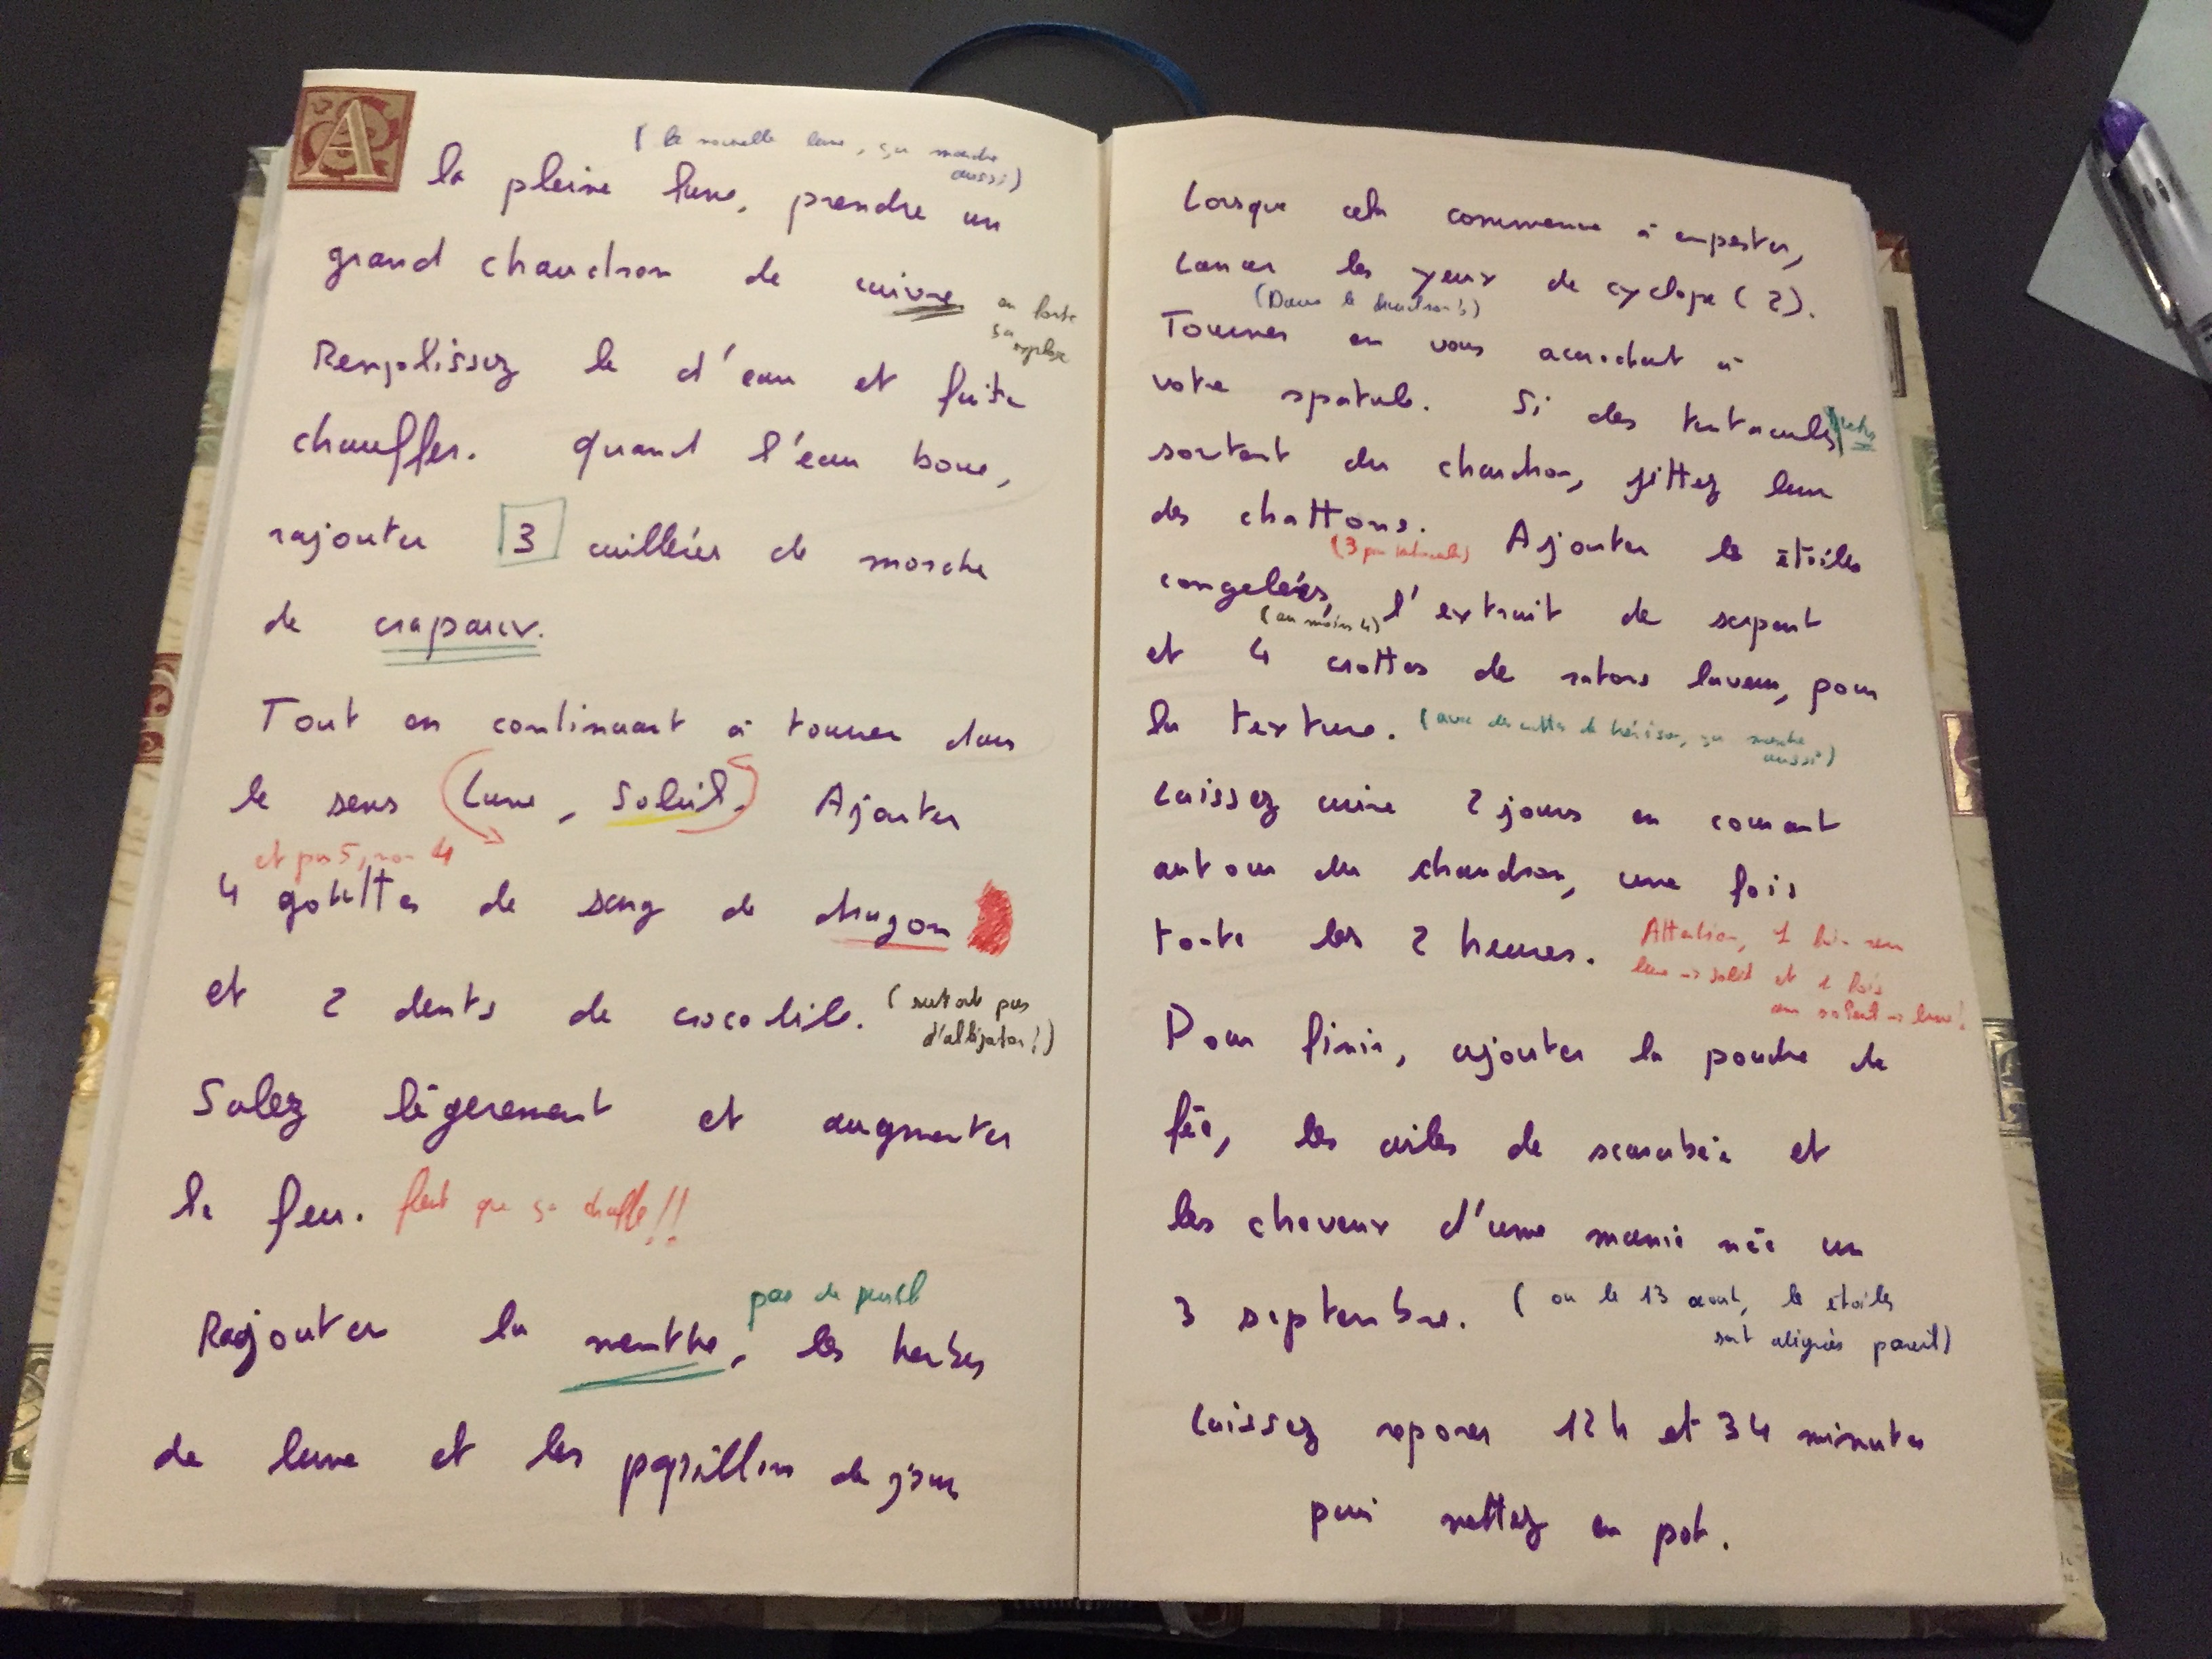 A
(la nouvelle lune, ça marche
aussi)
la pleine lune, prendre un
grand chaudron de cuivre
en fonte
ça explose
Remplissez le d'eau et faite
chauffer. Quand l'eau boue,
rajouter 3 cuillères de morche
de crapaux.
Tout en continuant à tourner dans
le sens Lune, Soleil. Ajouter
et pas 5, non 4
4 gouttes de sang de dragon
et 2 dents de crocodile. (surtout pas
d'alligator!)
Salez légerement et augmenter
le feu. faut que ça chauffe!!
pas de persil
Rajouter la menthe, les herbes
de lune et les papillon de jour
Lorsque cela commence à empester,
Lancer les yeux de cyclope (2).
(Dans le chaudron!)
Tourner en vous accrochant à
votre spatule. Si des tentacules
sortent du chaudron, jettez leur
des chattons. Ajouter les étoiles
(3 par tentacule)
congelées, l'extrait de serpent
(au moins 4)
et 4 crottes de ratons laveur, pour
la texture. (avec des crottes de hérisson, ça marche
aussi)
Laissez cuire 2 jours en courant
autour du chaudron, une fois
toute les 2 heures. Attention, 1 fois sens
lune -> soleil et 1 fois
en soleil -> lune!
Pour finir, ajouter la poudre de
fée, les ailes de scarabée et
les cheveux d'une mamie née un
3 septembre. (ou le 13 aout, les étoiles
sont alignées pareil)
Laissez reposer 12h et 34 minutes
puis mettez en pot.